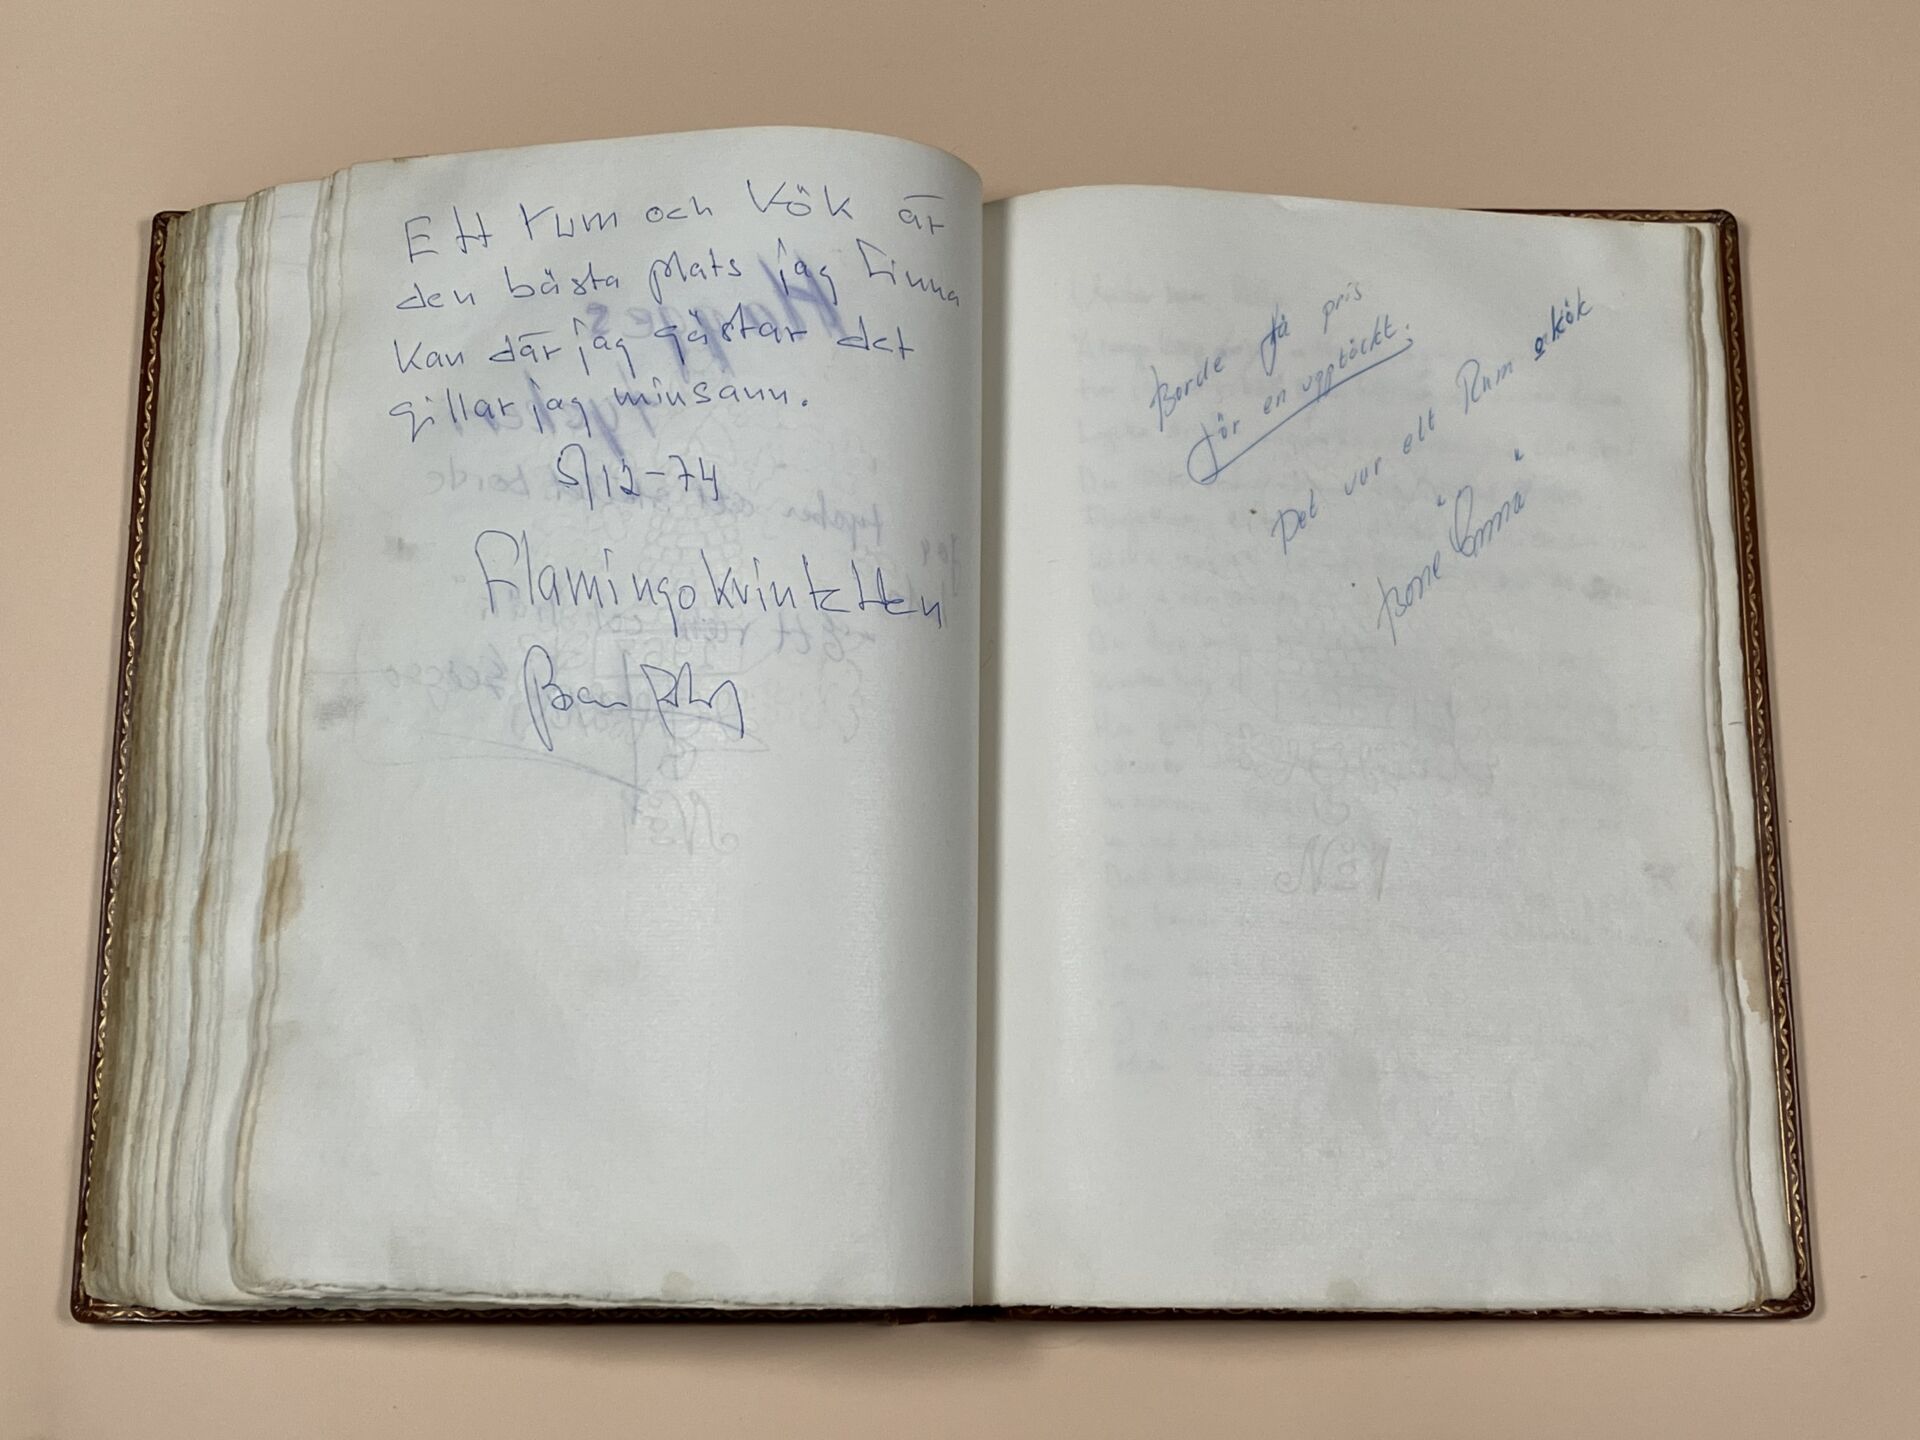 Ett rum och kök är
den bästa plats jag finna
kan där jag gästar det
gillar jag minsann.
5/12-74
Flamingokvintetten
Borde få pris
för en upptäckt.
Det var ett Rum o kök